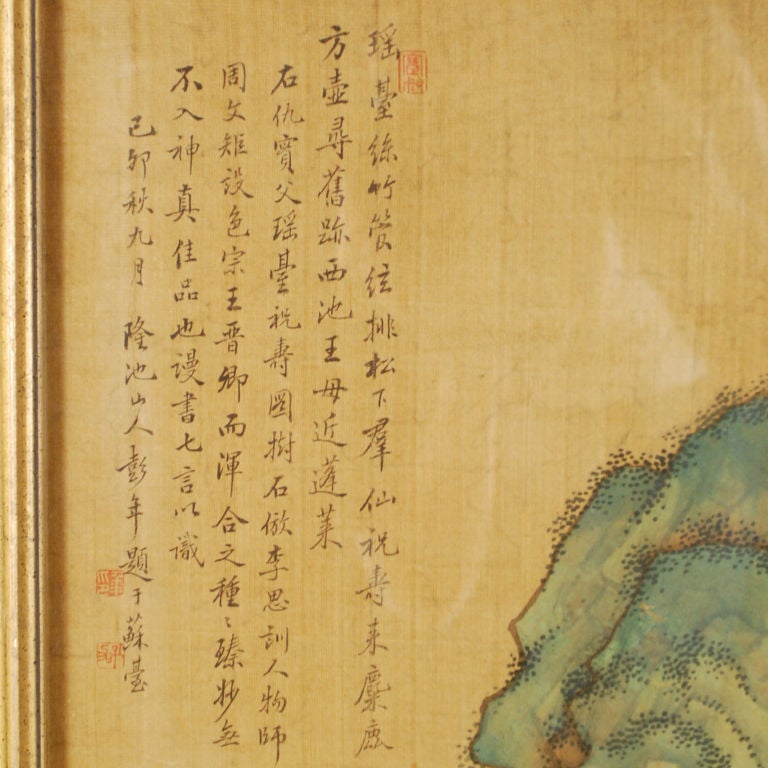 瑶臺絲竹管絃排松下羣仙祝壽来麋鹿
方壺尋舊跡西池王母近蓬莱
右仇實父瑶臺祝壽圖樹石倣李思訓人物師
周文矩設色宗王晋卿而渾合之種〻臻妙無
不入神真佳品也謾書七言以識
己卯秋九月 隆池山人彭年題于蘇臺